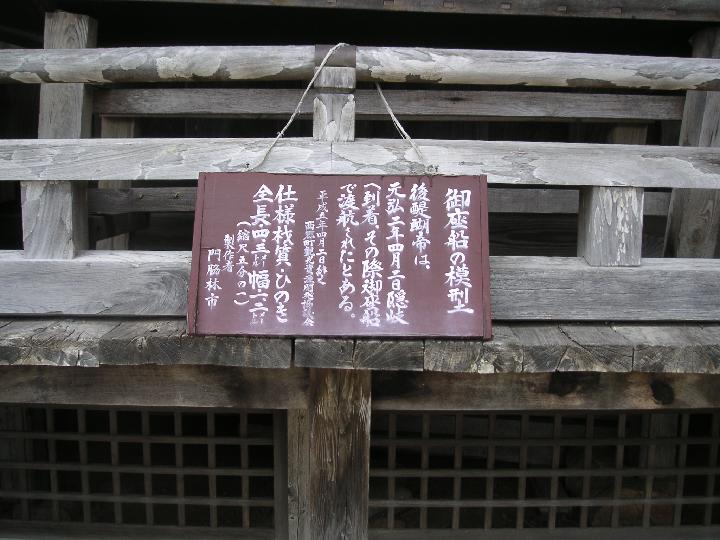 御座船の模型
後醍醐帝は、
元弘二年四月二日隠岐
へ到着、その際御座船
で渡航されたとある。
平成五年四月一日
西郷町観光
仕様材質・ひのき
全長四三トル幅・六二
(縮尺五分の一)
製作者
門脇林市